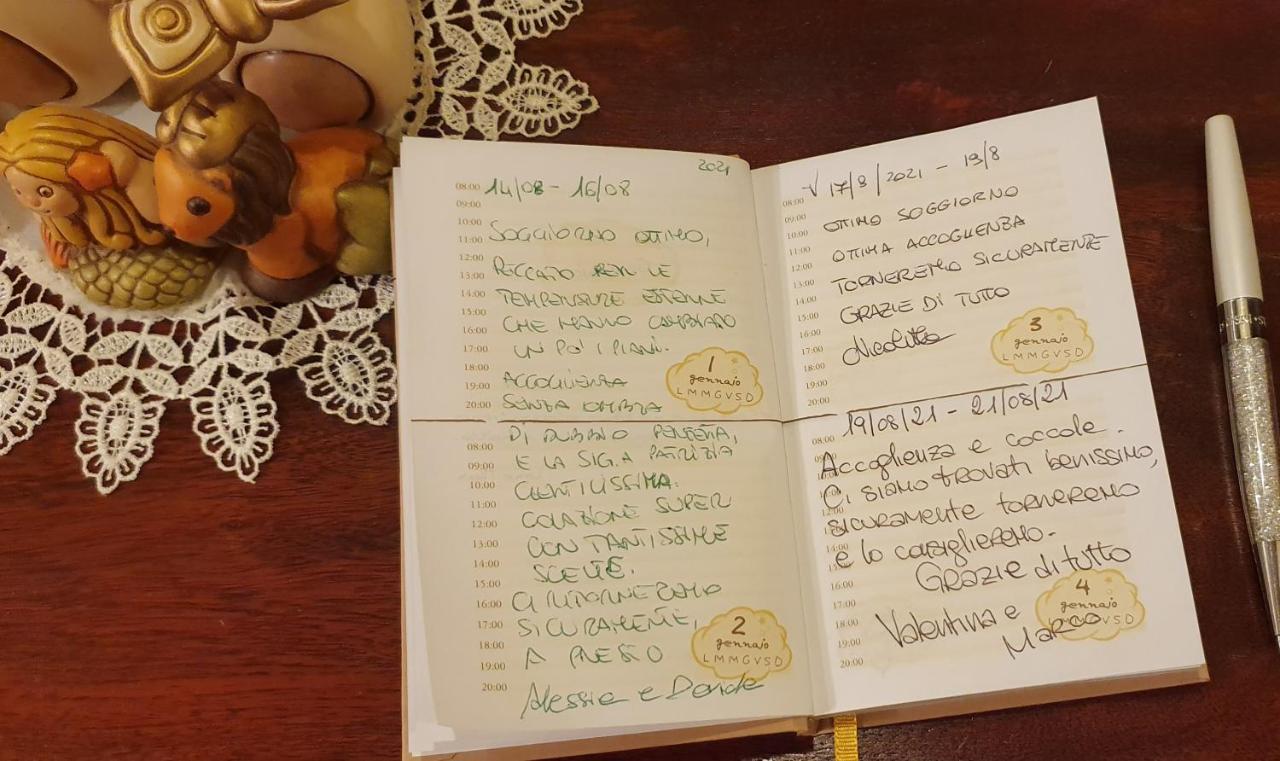 2021
14/08 - 16/08
SOGGIORNO OTTIMO,
PECCATO PER LE
TEMPERATURE ESTERNE
CHE HANNO CAMBIATO
UN PO' I PIANI.
ACCOGLIENZA
SENZA OMBRA
DI DUBBIO PERFETTA,
E LA SIG.A PATRIZIA
GENTILISSIMA.
COLAZIONE SUPER
CON TANTISSIME
SCELTE.
CI RITORNEREMO
SICURAMENTE,
A PRESTO
Alessia e Davide
08:00
09:00
10:00
11:00
12:00
13:00
14:00
15:00
16:00
17:00
18:00
19:00
20:00
1
gennaio
LMMGVSD
08:00
09:00
10:00
11:00
12:00
13:00
14:00
15:00
16:00
17:00
18:00
19:00
20:00
2
gennaio
LMMGVSD
17/8/2021 - 19/8
OTTIMO SOGGIORNO
OTTIMA ACCOGLIENZA
TORNEREMO SICURAMENTE
GRAZIE DI TUTTO
Nicoletta
08:00
09:00
10:00
11:00
12:00
13:00
14:00
15:00
16:00
17:00
18:00
19:00
20:00
3
gennaio
LMMGVSD
19/08/21 - 21/08/21
Accoglienza e coccole.
Ci siamo trovati benissimo,
sicuramente torneremo
e lo consiglieremo.
Grazie di tutto
Valentina e
Marco
08:00
14:00
16:00
17:00
18:00
19:00
20:00
4
gennaio